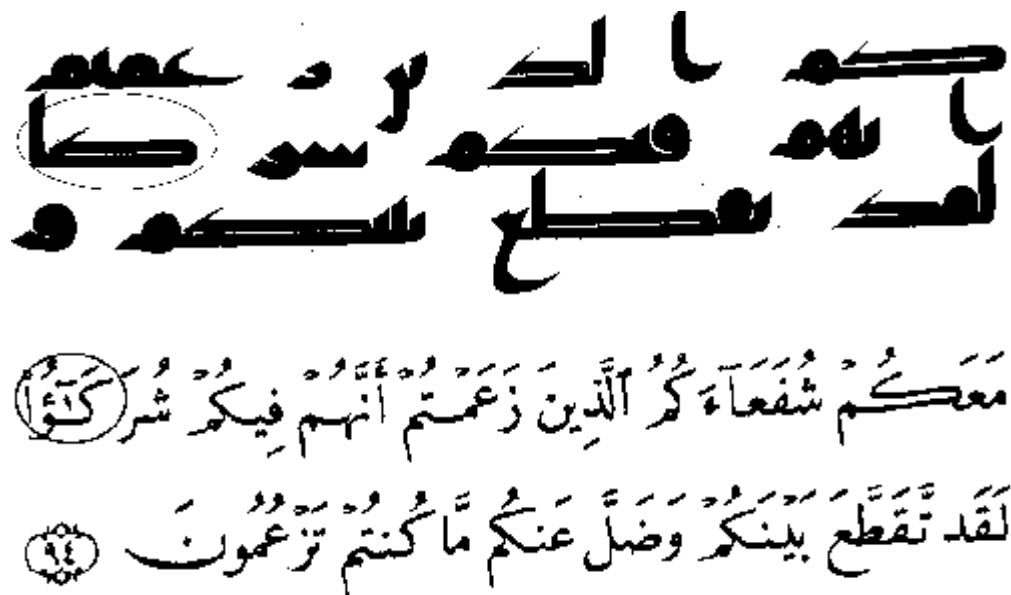 كم ا لد ىں ر عمىم
ا ىهم ڡىكم سر كا
لٯد ىٯطع ىىىكم و
مَعَكُمْ شُفَعَآءَكُمُ ٱلَّذِينَ زَعَمْتُمْ أَنَّهُمْ فِيكُمْ شُرَكَـٰٓؤُا۟
لَقَد تَّقَطَّعَ بَيْنَكُمْ وَضَلَّ عَنكُم مَّا كُنتُمْ تَزْعُمُونَ ٩٤